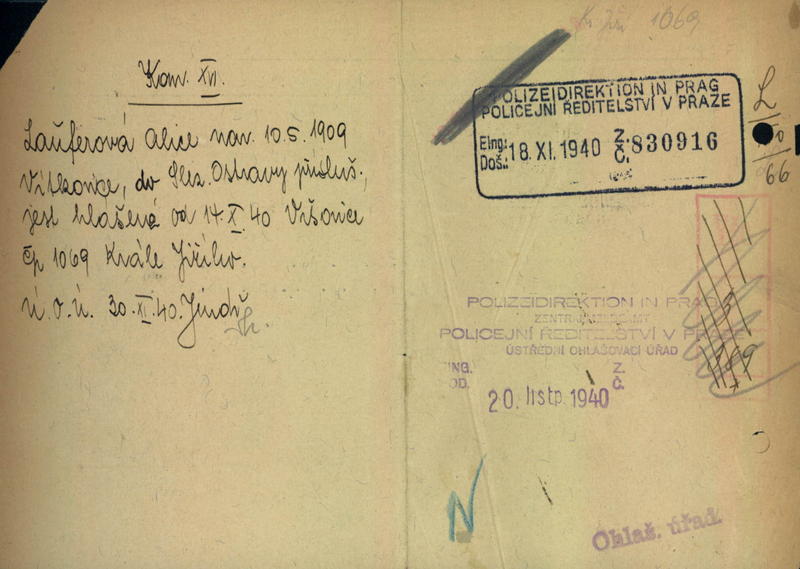 Kom. XVI.
Lauferová Alice nar. 10.5.1909
Vítkovice, do Slez. Ostravy přísluš.,
jest hlášena od 14.X.40 Vršovice
čp 1069 Krále Jiřího.
Ú.O.Ú. 30.XI.40. Jindř
1069
POLIZEIDIREKTION IN PRAG
POLICEJNÍ ŘEDITELSTVÍ V PRAZE
Eing.: Doš.: 18. XI. 1940 Z. Č. 830916
L
66
POLIZEIDIREKTION IN PRAG
ZENTRALMELDEAMT
POLICEJNÍ ŘEDITELSTVÍ V PRAZE
ÚSTŘEDNÍ OHLAŠOVACÍ ÚŘAD
ING. Z.
OD. Č.
20. listp. 1940
N
Ohlaš. úřad.